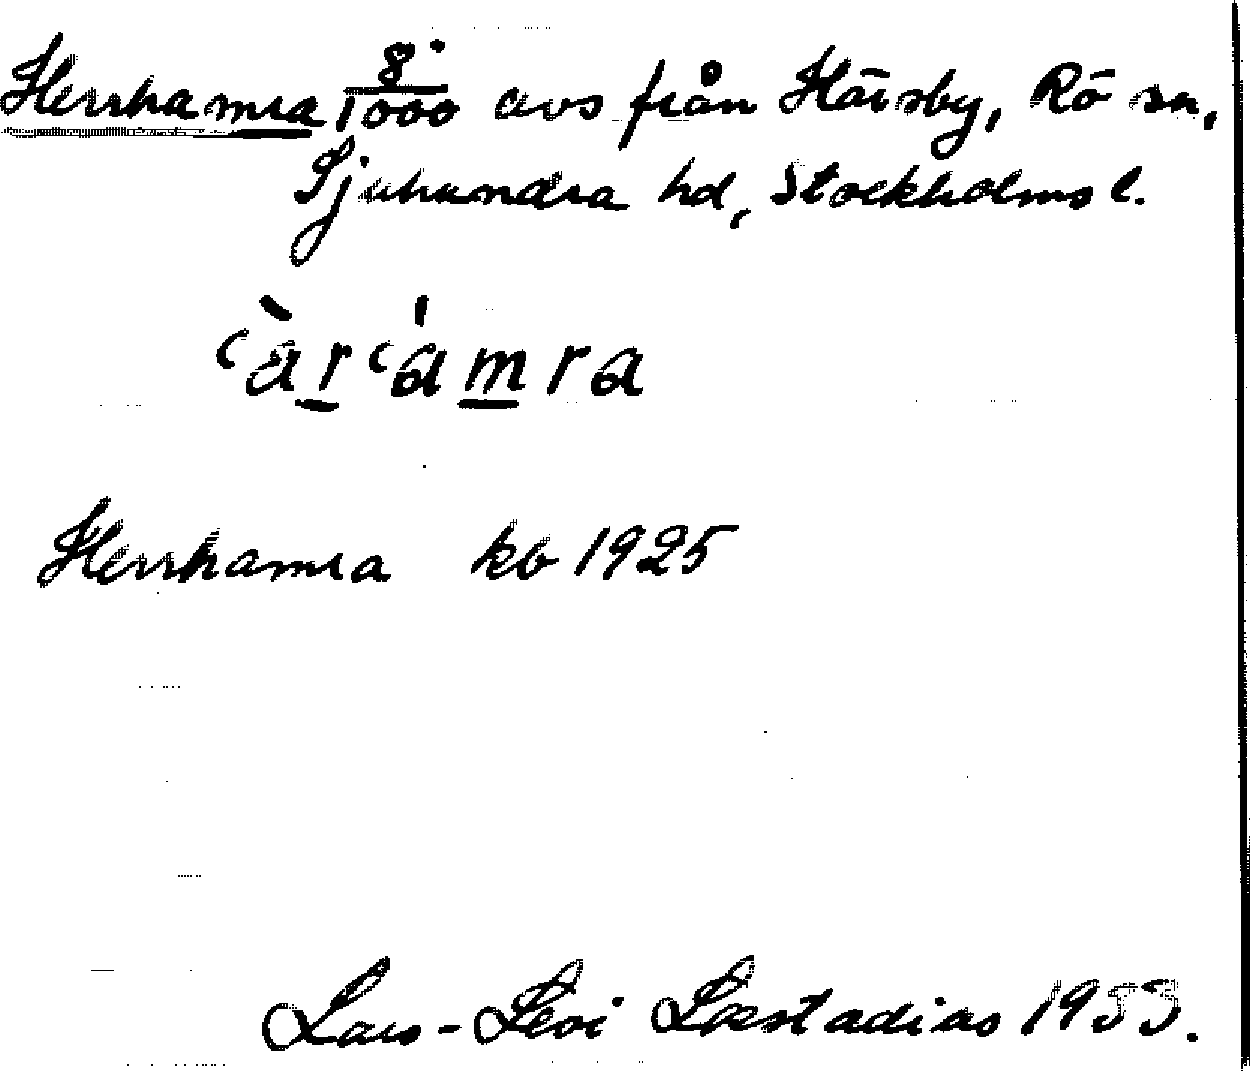 Herrhamra 8/1000 avs från Härsby, Rö sn,
Sjuhundra hd, Stockholms l.
‘àr‘ámra
Herrhamra kb 1925
Lars-Levi Læstadius 1953.